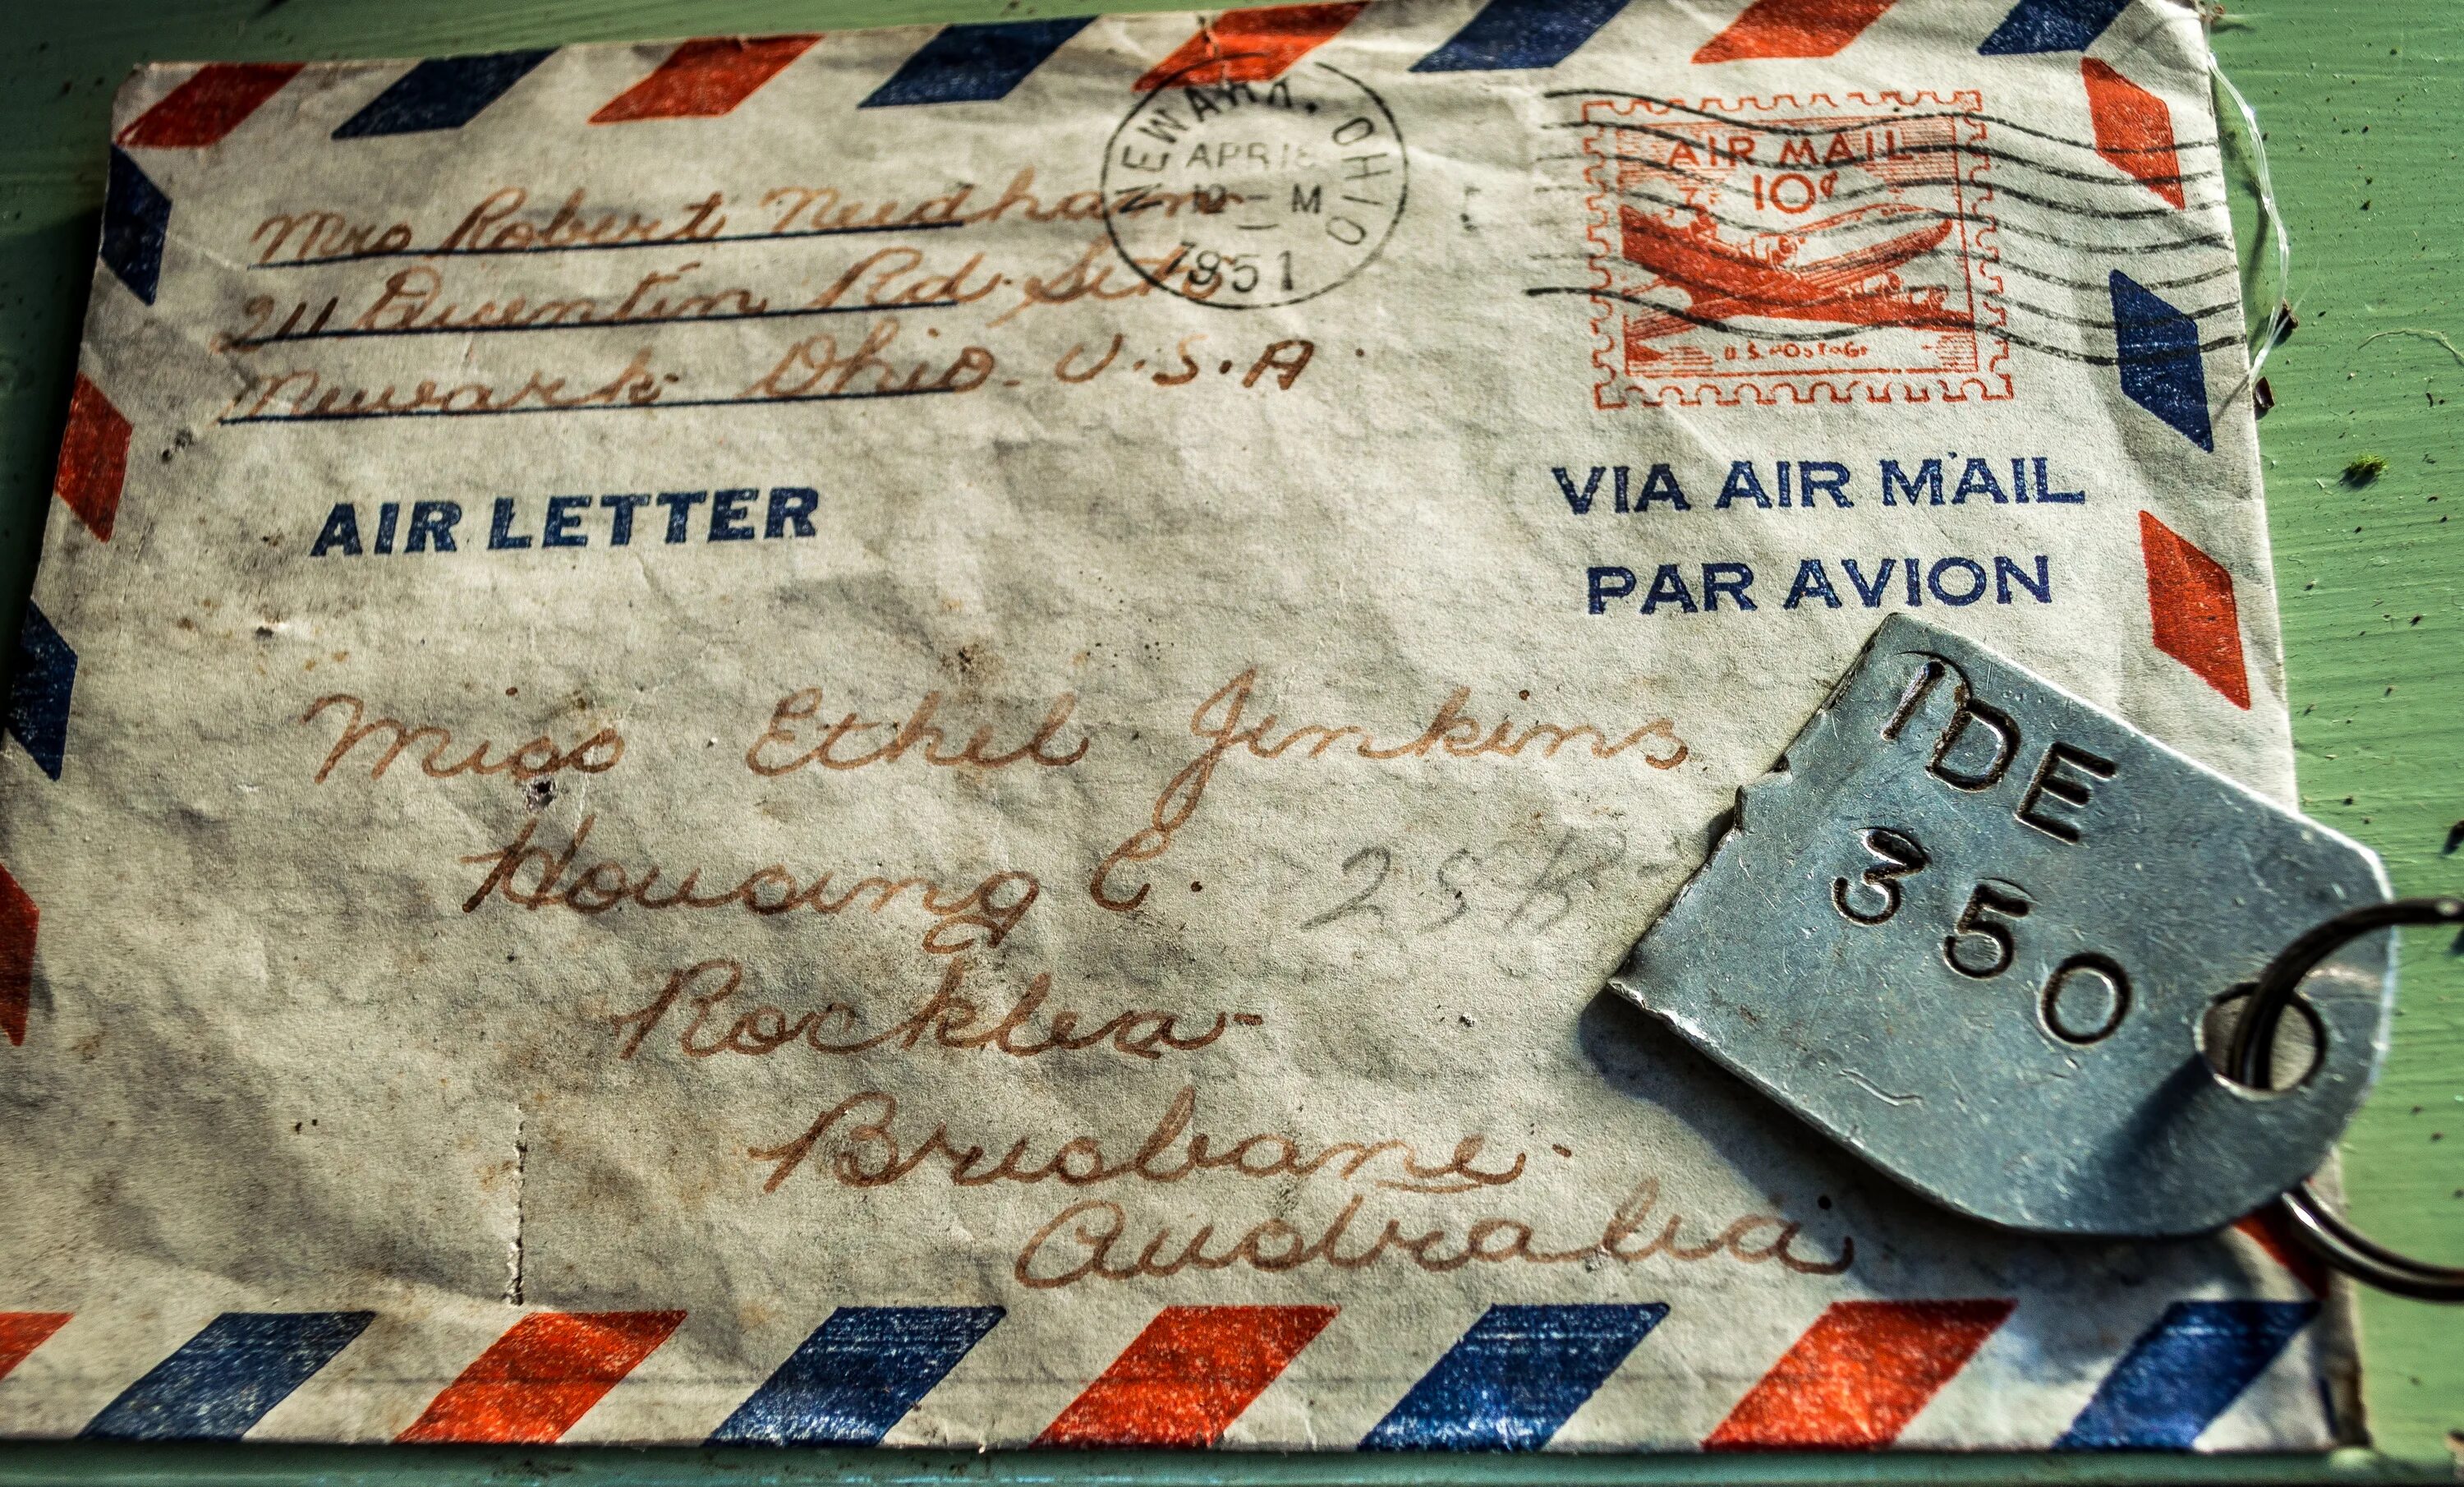 Mrs Robert Needham
211 Quentin Rd. Sth
Newark Ohio. U.S.A.
NEWARK, OHIO
APR 18
12 - M
1951
AIR MAIL
10¢
U.S. POSTAGE
AIR LETTER
VIA AIR MAIL
PAR AVION
Miss Ethel Jenkins
Housing C.
Rocklea-
Brisbane.
Australia
IDE
350